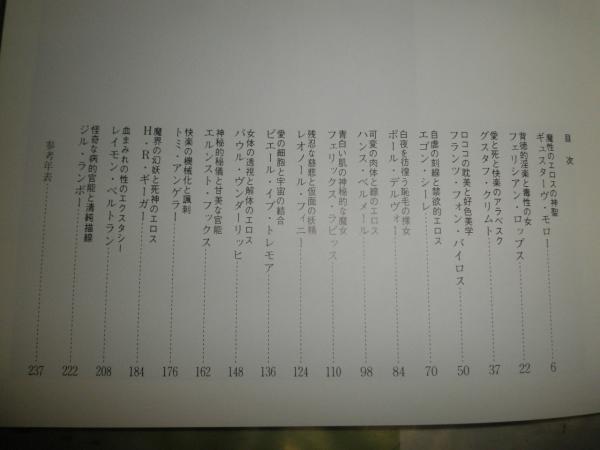 目次
魔性のエロスの神聖
ギュスターヴ・モロー 6
背徳的淫楽と毒性の女
フェリシアン・ロップス 22
愛と死と快楽のアラベスク
グスタフ・クリムト 37
ロココの耽美と好色美学
フランツ・フォン・バイロス 50
自虐の刻線と禁欲的エロス
エゴン・シーレ 70
白夜を彷徨う恥毛の裸女
ポール・デルヴォー 84
可変の肉体と線のエロス
ハンス・ベルメール 98
青白い肌の神秘的な魔女
フェリックス・ラビッス 110
残忍な慈悲と仮面の妖精
レオノール・フィニー 124
愛の細胞と宇宙の結合
ピエール・イブ・トレモア 136
女体の透視と解体のエロス
パウル・ヴンダーリッヒ 148
神秘的秘儀と甘美な官能
エルンスト・フックス 162
快楽の機械化と諷刺
トミ・アンゲラー 176
魔界の幻妖と死神のエロス
H・R・ギーガー 184
血まみれの性のエクスタシー
レイモン・ベルトラン 208
怪奇な病的官能と清純描線
ジル・ランボー 222
参考年表 237